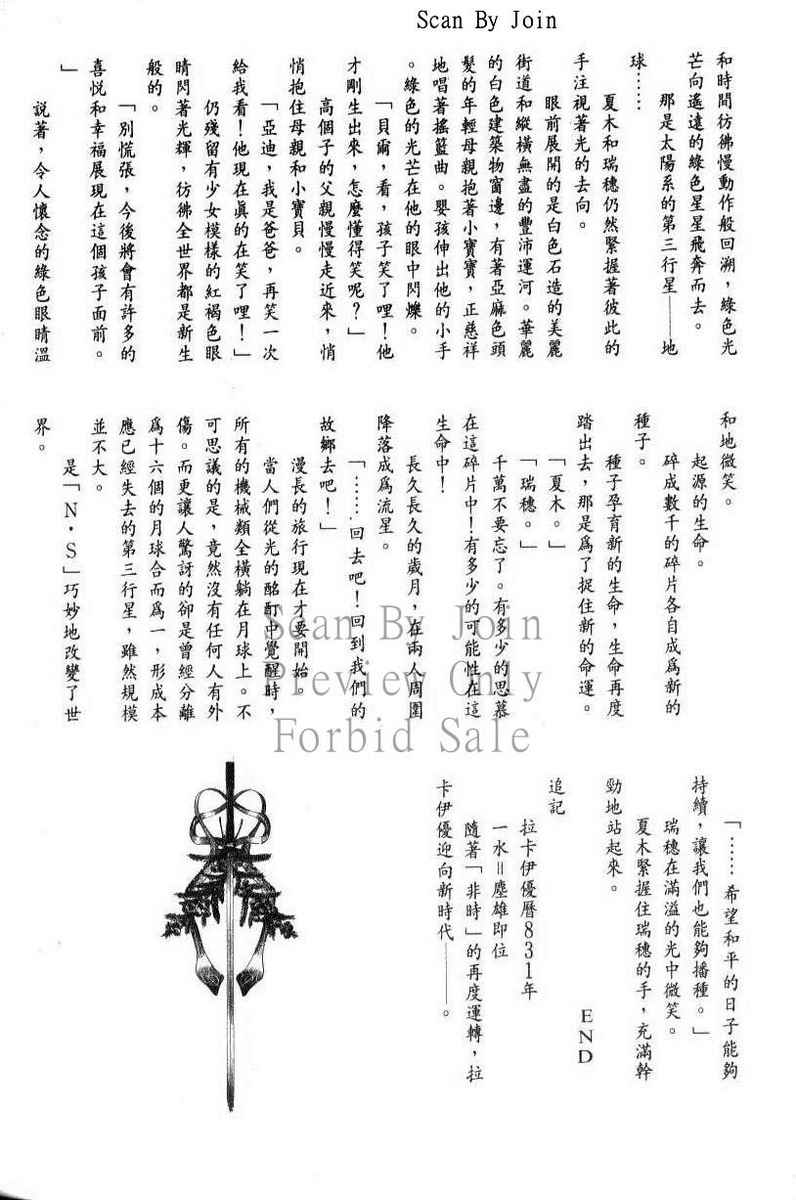 Scan By Join
和時間彷彿慢動作般回溯，綠色光
芒向遙遠的綠色星星飛奔而去。
那是太陽系的第三行星——地
球……
夏木和瑞穗仍然緊握著彼此的
手注視著光的去向。
眼前展開的是白色石造的美麗
街道和縱橫無盡的豐沛運河。華麗
的白色建築物窗邊，有著亞麻色頭
髮的年輕母親抱著小寶寶，正慈祥
地唱著搖籃曲。嬰孩伸出他的小手
。綠色的光芒在他的眼中閃爍。
「貝爾，看，孩子笑了哩！他
才剛生出來，怎麼懂得笑呢？」
高個子的父親慢慢走近來，悄
悄抱住母親和小寶貝。
「亞迪，我是爸爸，再笑一次
給我看！他現在真的在笑了哩！」
仍殘留有少女模樣的紅褐色眼
睛閃著光輝，彷彿全世界都是新生
般的。
「別慌張，今後將會有許多的
喜悅和幸福展現在這個孩子面前。
」
說著，令人懷念的綠色眼睛溫
和地微笑。
起源的生命。
碎成數千的碎片各自成爲新的
種子。
種子孕育新的生命，生命再度
踏出去，那是爲了捉住新的命運。
「夏木。」
「瑞穗。」
千萬不要忘了。有多少的思慕
在這碎片中！有多少的可能性在這
生命中！
長久長久的歲月，在兩人周圍
降落成爲流星。
「……回去吧！回到我們的
故鄉去吧！」
漫長的旅行現在才要開始。
當人們從光的酩酊中覺醒時，
所有的機械類全橫躺在月球上。不
可思議的是，竟然沒有任何人有外
傷。而更讓人驚訝的卻是曾經分離
爲十六個的月球合而爲一，形成本
應已經失去的第三行星，雖然規模
並不大。
是「N·S」巧妙地改變了世
界。
「……希望和平的日子能夠
持續，讓我們也能夠播種。」
瑞穗在滿溢的光中微笑。
夏木緊握住瑞穗的手，充滿幹
勁地站起來。
END
追記
拉卡伊優曆831年
一水＝塵雄即位
隨著「非時」的再度運轉，拉
卡伊優迎向新時代——。
Scan By Join
Preview Only
Forbid Sale